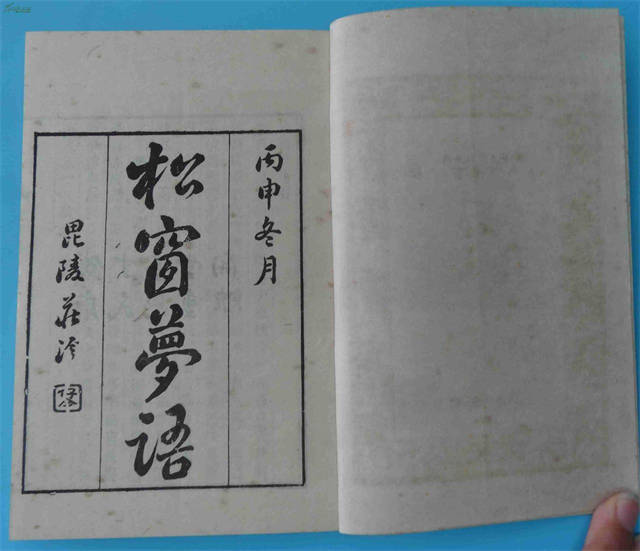 丙申冬月
松窗夢語
毘陵莊